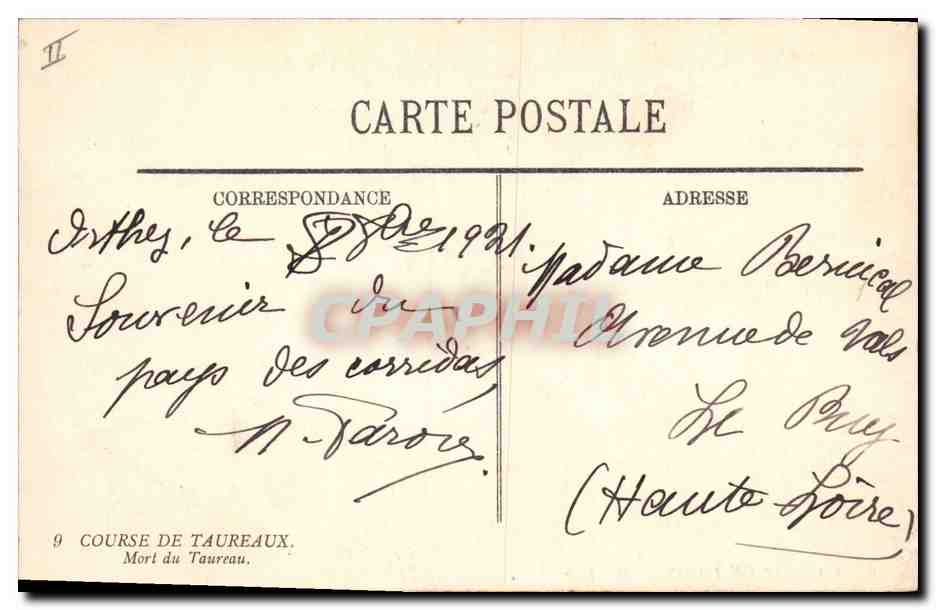 II
CARTE POSTALE
CORRESPONDANCE
ADRESSE
Orthez, le 8bre 1921.
Souvenir du
pays des corridas
Madame
Avenue de Vals
Le Puy
(Haute-Loire)
CPAPHIL
9 COURSE DE TAUREAUX.
Mort du Taureau.